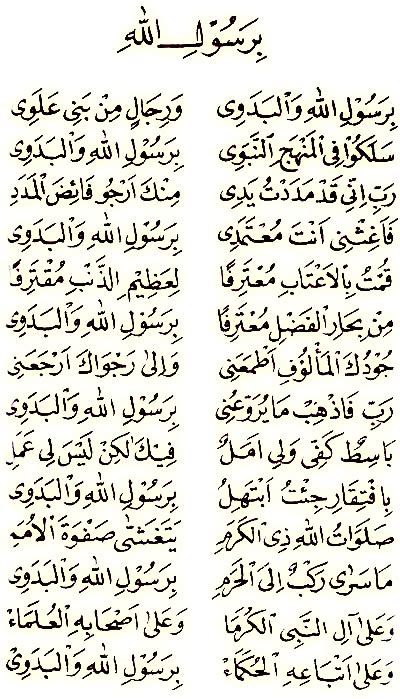 بِرَسُوْلِ اللهِ
بِرَسُوْلِ اللهِ وَالْبَدَوِى وَرِجَالٍ مِنْ بَنِى عَلَوِى
سَلَكُوْا فِى الْمَنْهَجِ النَّبَوِى بِرَسُوْلِ اللهِ وَالْبَدَوِى
رَبِّ اِنِّى قَدْ مَدَدْتُ يَدِى مِنْكَ اَرْجُو فَائِضَ الْمَدَدِ
فَاَغِثْنِى اَنْتَ مُعْتَمَدِى بِرَسُوْلِ اللهِ وَالْبَدَوِى
قُمْتُ بِالْاَعْتَابِ مُعْتَرِفًا لِعَظِيْمِ الذَّنْبِ مُقْتَرِفًا
مِنْ بِحَارِ الْفَضْلِ مُغْتَرِفًا بِرَسُوْلِ اللهِ وَالْبَدَوِى
جُوْدُكَ الْمَأْلُوْفُ اَطْمَعَنِى وَاِلٰى رَجْوَاكَ اَرْجَعَنِى
رَبِّ فَاذْهِبْ مَا يُرَوِّعُنِى بِرَسُوْلِ اللهِ وَالْبَدَوِى
بَاسِطٌ كَفِّى وَلِى اَمَلٌ فِيْكَ لٰكِنْ لَيْسَ لِى عَمَلٌ
بِافْتِقَارٍ جِئْتُ اَبْتَهِلُ بِرَسُوْلِ اللهِ وَالْبَدَوِى
صَلَوَاتُ اللهِ ذِى الْكَرَمِ يَتَغَشَّى صَفْوَةَ الْاُمَمِ
مَا سَرٰى رَكْبٌ اِلَى الْحَرَمِ بِرَسُوْلِ اللهِ وَالْبَدَوِى
وَعَلٰى آلِ النَّبِى الْكُرَمَا وَعَلٰى اَصْحَابِهِ الْعُلَمَاءْ
وَعَلٰى اَتْبَاعِهِ الْحُكَمَاءْ بِرَسُوْلِ اللهِ وَالْبَدَوِى